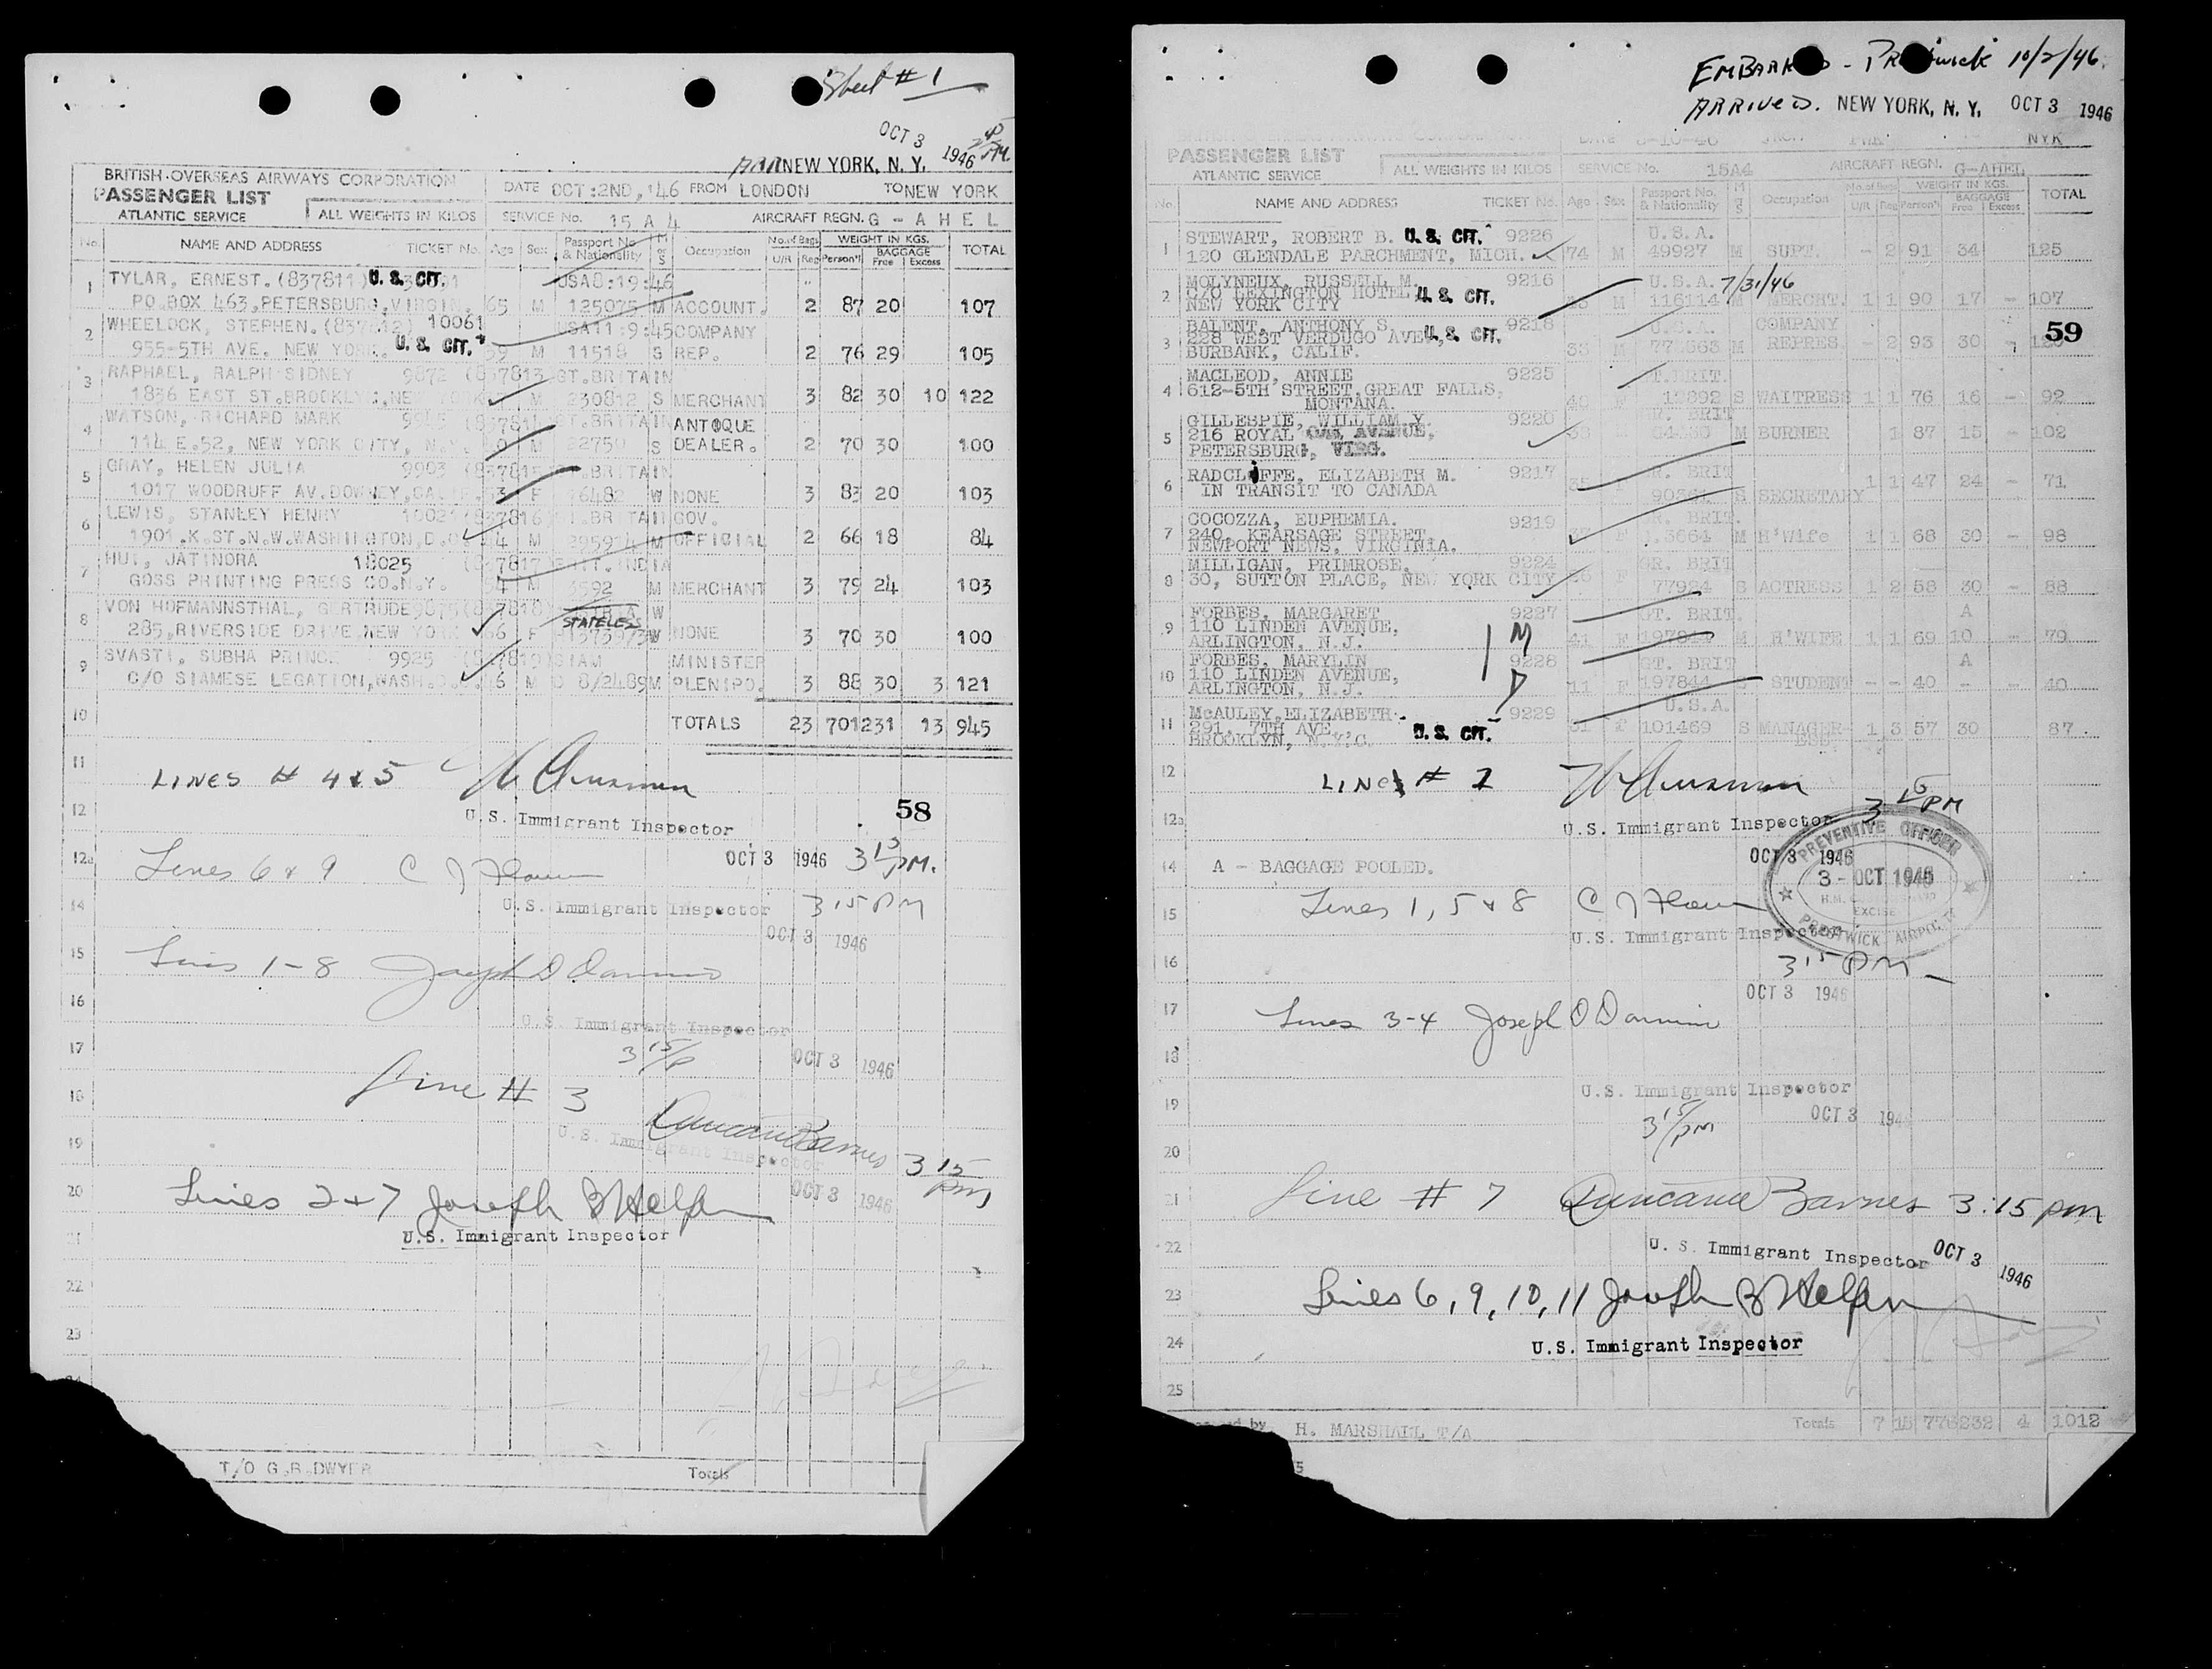 Sheet # 1
OCT 3 1946
ARR NEW YORK, N. Y.
BRITISH OVERSEAS AIRWAYS CORPORATION
PASSENGER LIST
ATLANTIC SERVICE
ALL WEIGHTS IN KILOS
DATE OCT:2ND,'46 FROM LONDON TO NEW YORK
SERVICE No. 15 A 4 AIRCRAFT REGN. G - A H E L
No. NAME AND ADDRESS TICKET No. Age Sex Passport No. & Nationality M or S Occupation No. of Bags U/R Reg WEIGHT IN KGS. Person'l BAGGAGE Free Excess TOTAL
1 TYLAR, ERNEST. (837811) U. S. CIT. USA8:19:46
PO.BOX 463, PETERSBURG, VIRGIN. 65 M 125075 M ACCOUNT. 2 87 20 107
2 WHEELOCK, STEPHEN. (837812) 10061 USA11:9:45 COMPANY
955-5TH AVE. NEW YORK. U. S. CIT. 59 M 11518 S REP. 2 76 29 105
3 RAPHAEL, RALPH SIDNEY 9872 (837813 GT.BRITAIN
1836 EAST ST.BROOKLYN,NEW YORK M 230812 S MERCHANT 3 82 30 10 122
4 WATSON, RICHARD MARK GT.BRITAIN ANTOQUE
114 E.52, NEW YORK CITY, N. M 22750 S DEALER. 2 70 30 100
5 GRAY, HELEN JULIA 9903 (837815 GT.BRITAIN
1017 WOODRUFF AV.DOWNEY, F 76482 W NONE 3 83 20 103
6 LEWIS, STANLEY HENRY (837816) GT.BRITAIN GOV.
1901.K.ST.N.W.WASHINGTON,D.C. M M OFFICIAL 2 66 18 84
7 HUI, JATINDRA 10025 (837817) BRIT.INDIA
GOSS PRINTING PRESS CO.N.Y. M M MERCHANT 3 79 24 103
8 VON HOFMANNSTHAL, GERTRUDE 9875 (837818) STATELESS W
285, RIVERSIDE DRIVE, NEW YORK 66 F W NONE 3 70 30 100
9 SVASTI, SUBHA PRINCE 9925 (837819) SIAM MINISTER
C/O SIAMESE LEGATION, WASH.D.C. M D 8/2489 M PLENIPO. 3 88 30 3 121
10 TOTALS 23 701 231 13 945
11 LINES # 4 & 5
12 U.S. Immigrant Inspector 58
12a Lines 6 & 9 OCT 3 1946 3 15 PM.
14 U.S. Immigrant Inspector 3 15 PM
OCT 3 1946
15 Lines 1-8
16
U.S. Immigrant Inspector
17 3 15/P OCT 3 1946
18 Line # 3 Duncan Barnes
19 U.S. Immigrant Inspector 3 15 pm
20 Lines 2 + 7 Joseph B Helfen OCT 3 1946
21 U.S. Immigrant Inspector
22
23
T/O G.R.DWYER Totals
EMBARKED - Prestwick 10/2/46.
ARRIVED. NEW YORK, N. Y. OCT 3 1946
DATE 3-10-46 FROM NYK
PASSENGER LIST
ATLANTIC SERVICE
ALL WEIGHTS IN KILOS
SERVICE No. 15A4 AIRCRAFT REGN. G-AHEL
No. NAME AND ADDRESS TICKET No. Age Sex Passport No. & Nationality M or S Occupation No. of Bags U/R Reg WEIGHT IN KGS. Person'l BAGGAGE Free Excess TOTAL
1 STEWART, ROBERT B. U. S. CIT. 9226 U.S.A.
120 GLENDALE PARCHMENT, MICH. 74 M 49927 M SUPT. - 2 91 34 125
2 MOLYNEUX, RUSSELL M. 9216 U.S.A. 7/31/46
C/O LEXINGTON HOTEL, U. S. CIT.
NEW YORK CITY M 116114 M MERCHT. 1 1 90 17 - 107
3 BALENT, ANTHONY S. 9218 U.S.A. COMPANY
228 WEST VERDUGO AVE., U. S. CIT. 59
BURBANK, CALIF. M M REPRES. - 2 93 30
4 MACLEOD, ANNIE 9225 GT.BRIT.
612-5TH STREET,GREAT FALLS,
MONTANA. S WAITRESS 1 1 76 16 - 92
5 GILLESPIE, WILLIAM Y. 9220 GR. BRIT
216 ROYAL OAK AVENUE, M BURNER 1 87 15 - 102
PETERSBURG, VIRG.
6 RADCLIFFE, ELIZABETH M. 9217 GR. BRIT
IN TRANSIT TO CANADA S SECRETARY 1 1 47 24 - 71
7 COCOZZA, EUPHEMIA. 9219 GR. BRIT.
240, KEARSAGE STREET, M H'Wife 1 1 68 30 - 98
NEWPORT NEWS, VIRGINIA.
8 MILLIGAN, PRIMROSE, 9224 GR. BRIT
30, SUTTON PLACE, NEW YORK CITY F 77924 S ACTRESS 1 2 58 30 - 88
9 FORBES, MARGARET 9227 GT. BRIT A
110 LINDEN AVENUE, M
ARLINGTON, N.J. 41 F 197844 M H'WIFE 1 1 69 10 - 79
10 FORBES, MARYLIN 9228 GT. BRIT A
110 LINDEN AVENUE, D
ARLINGTON, N.J. 11 F 197844 STUDENT - - 40 - - 40
11 McAULEY,ELIZABETH. 9229 U.S.A.
291, 7TH AVE, U. S. CIT. F 101469 S MANAGER- 1 3 57 30 87
BROOKLYN, N.Y.C. ESS.
12 LINE # 2 3 15 PM
12a U.S. Immigrant Inspector
OCT 3 1946
PREVENTIVE OFFICER
3 - OCT 1946
EXCISE
PRESTWICK AIRPORT
14 A - BAGGAGE POOLED.
15 Lines 1, 5 & 8
U.S. Immigrant Inspector
16 3 15 PM
OCT 3 1946
17 Lines 3-4
18
U.S. Immigrant Inspector
19 3 15/PM OCT 3 194
20
21 Line # 7 Duncan Barnes 3:15 pm
22 U. S. Immigrant Inspector OCT 3 1946
23 Lines 6, 9, 10, 11 Joseph B Helfen
24 U.S. Immigrant Inspector
25
by H. MARSHALL T/A Totals 7 15 776 232 4 1012